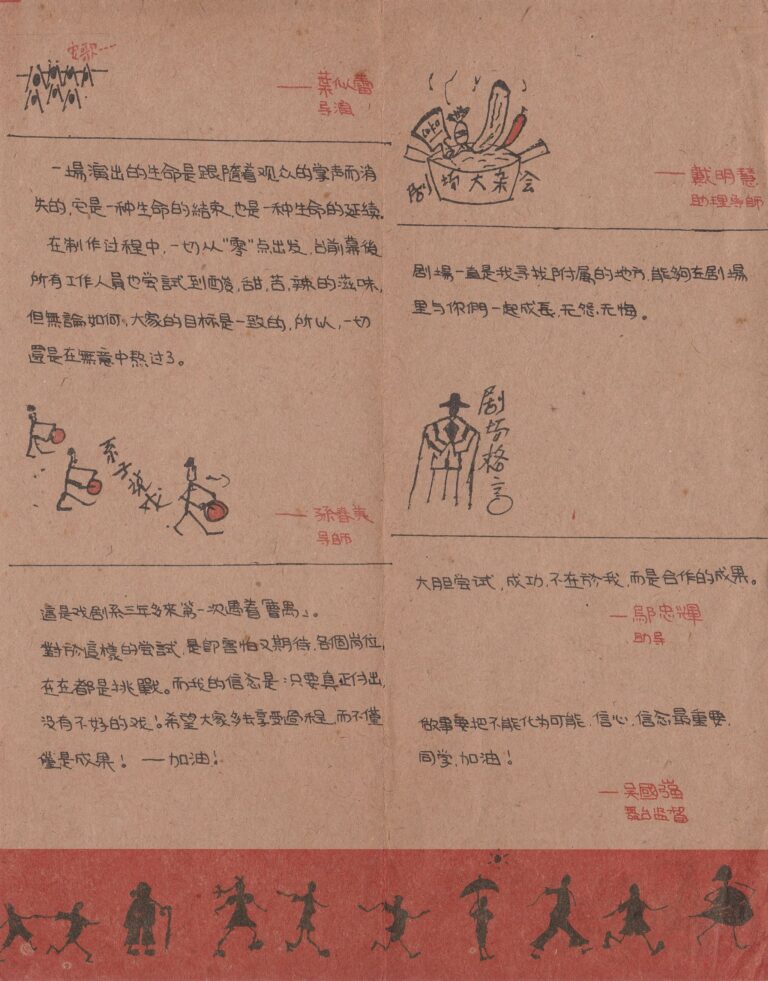 安歌---
——葉似蕾
导演
一場演出的生命是跟隨着观众的掌声而消
失的,它是一种生命的結束,也是一种生命的延续.
在制作过程中,一切从"零"点出发,台前幕後
所有工作人員也尝試到酸,甜,苦,辣的滋味,
但無論如何,大家的目标是一致的,所以,一切
還是在無意中熬过了。
系主说
——孫春美
导師
這是戏剧系三年多來第一次遇着「曹禺」。
對於這樣的尝試,是即害怕又期待,各個崗位,
在在都是挑戰。而我的信念是:只要真正付出,
沒有不好的戏!希望大家多去享受過程,而不僅
僅是成果! —加油!
剧場大杂会
——戴明慧
助理导師
剧場一直是我寻找附属的地方,能夠在剧場
里与你們一起成長,无怨.无悔。
剧场格言
大胆尝试,成功,不在於我,而是合作的成果。
—鄔忠輝
助导
做事要把不能化为可能,信心,信念最重要,
同学,加油!
—吴國强
舞台监督